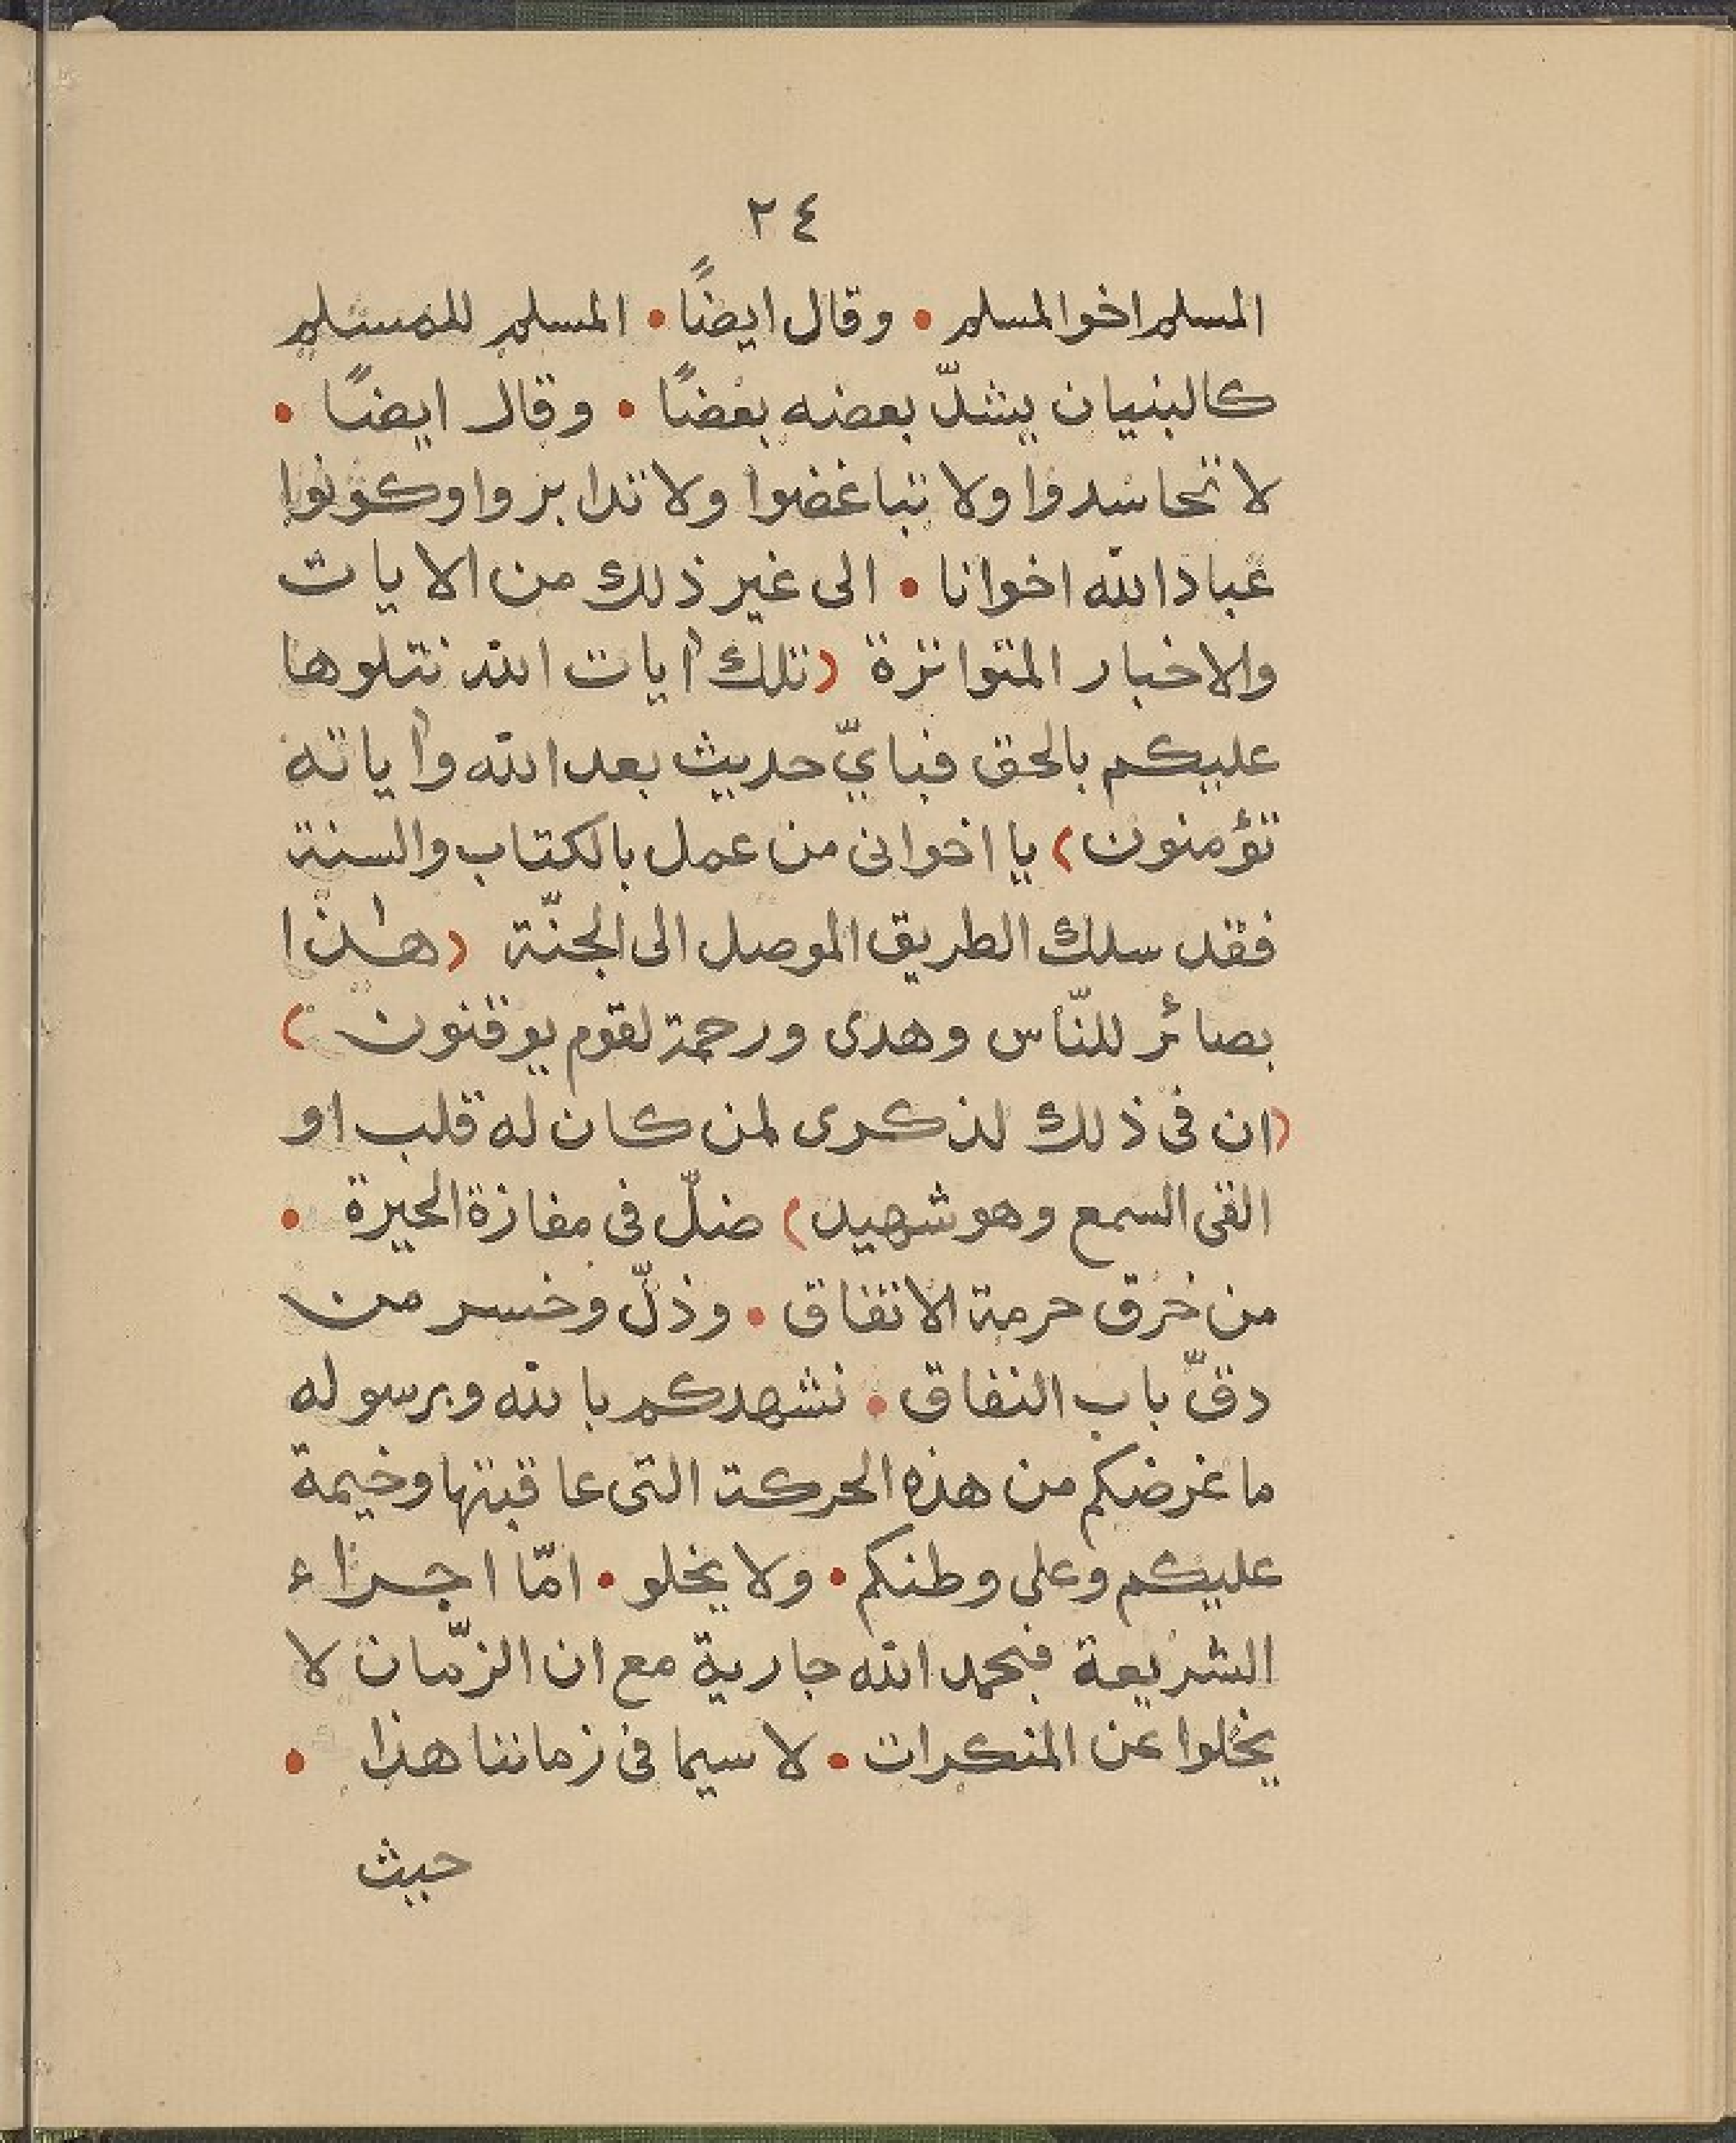 ٢٤
المسلم اخو المسلم • وقال ايضًا • المسلم للمسلم
كالبنيان يشدّ بعضه بعضًا • وقال ايضًا •
لا تحاسدوا ولا تباغضوا ولا تدابروا وكونوا
عباد الله اخوانا • الى غير ذلك من الايات
والاخبار المتواترة (تلك اٰيات الله نتلوها
عليكم بالحق فبايّ حديث بعد الله واٰياته
تؤمنون) يا اخوانى من عمل بالكتاب والسنة
فقد سلك الطريق الموصل الى الجنّة (هٰذا
بصائر للنّاس وهدى ورحمة لقوم يوقنون)
(ان فى ذلك لذكرى لمن كان له قلب او
القى السمع وهو شهيد) ضلّ فى مفازة الحيرة •
من خرق حرمة الاتفاق • وذلّ وخسر من
دقّ باب النفاق • نشهدكم بالله وبرسوله
ما غرضكم من هذه الحركة التى عاقبتها وخيمة
عليكم وعلى وطنكم • ولا يخلو • امّا اجراء
الشريعة فبحمد الله جارية مع ان الزّمان لا
يخلوا عن المنكرات • لا سيما فى زماننا هذا •
حيث